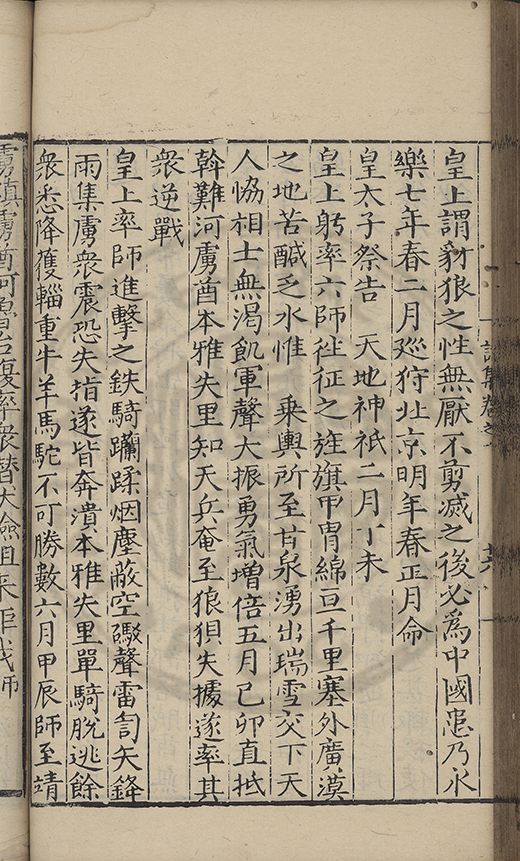 皇上謂豺狼之性無厭不剪滅之後必為中國患乃永
樂七年春二月廵狩北京明年春正月命
皇太子祭告　天地神祇二月丁未
皇上躬率六師徃征之旌旗甲冑綿亘千里塞外廣漠
之地苦鹹乏水惟　乗輿所至甘泉湧出瑞雪交下天
人恊相士無渇飢軍聲大振勇氣增倍五月己卯直抵
斡難河虜酋本雅失里知天兵奄至狼狽失據遂率其
衆逆戰
皇上率師進擊之鉄騎躪蹂烟塵蔽空礮聲雷訇矢鋒
雨集虜衆震恐失措遂皆奔潰本雅失里單騎脫逃餘
衆悉降獲輜重牛羊馬駝不可勝數六月甲辰師至靖
虜鎮虜酋阿魯台復率衆潛大險阻来拒我師